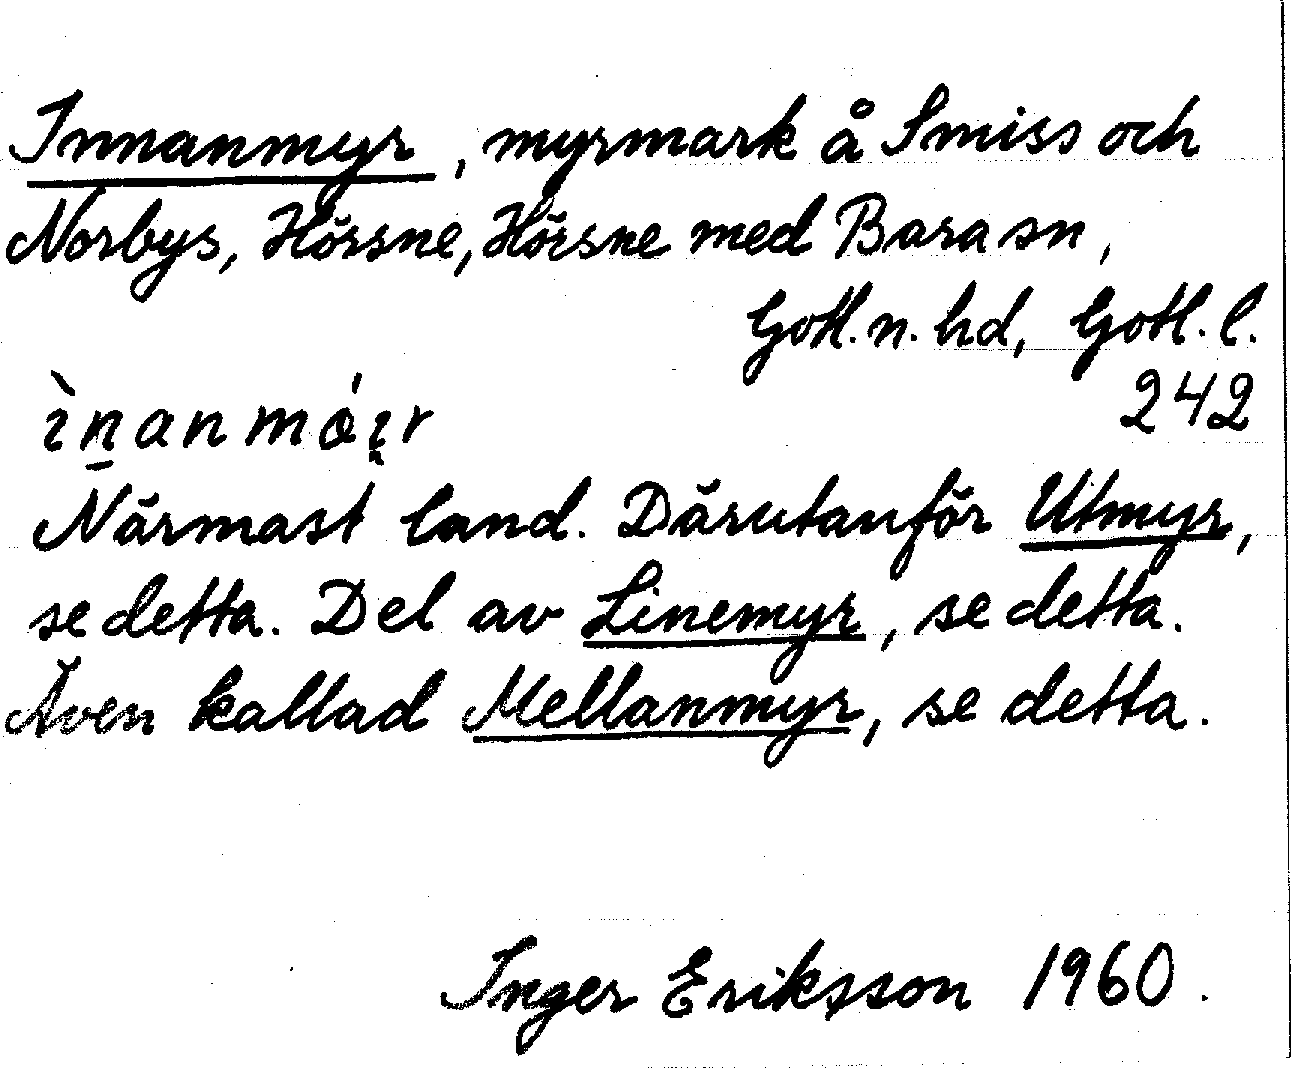 Innanmyr, myrmark å Smiss och
Norbys, Hörsne, Hörsne med Bara sn,
Gotl. n. hd, Gotl. l.
242
ìn̲anmǿı̨r
Närmast land. Därutanför Utmyr,
se detta. Del av Linemyr, se detta.
Även kallad Mellanmyr, se detta.
Inger Eriksson 1960.